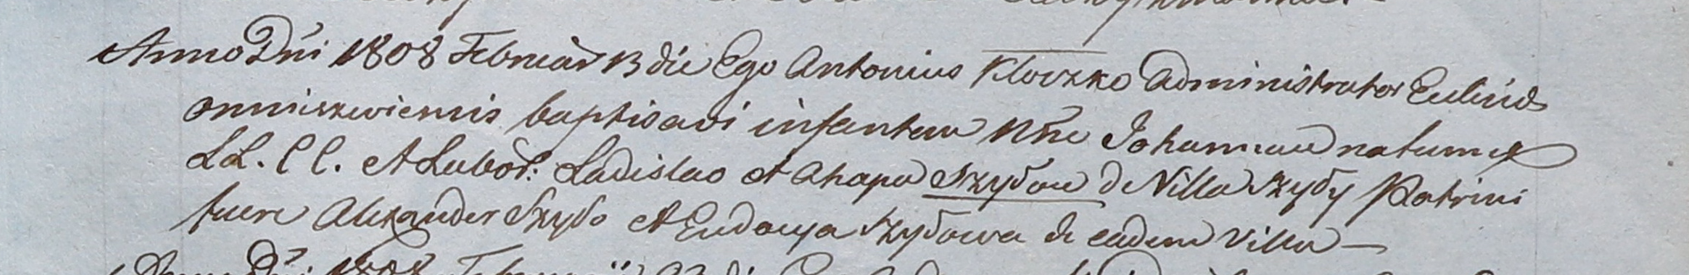 Anno Dni 1808 Februar 13 die Ego Antonius Kloczko Administrator
baptisavi infantem Nne Johannem natum ex
LL. CC. et Labor: Ladislao et Ahapa Szydow de Villa Szydy Patrini
fuere Alexander Szydo et Eudocya Szydowa de eadem Villa —
Anno Dni 1808